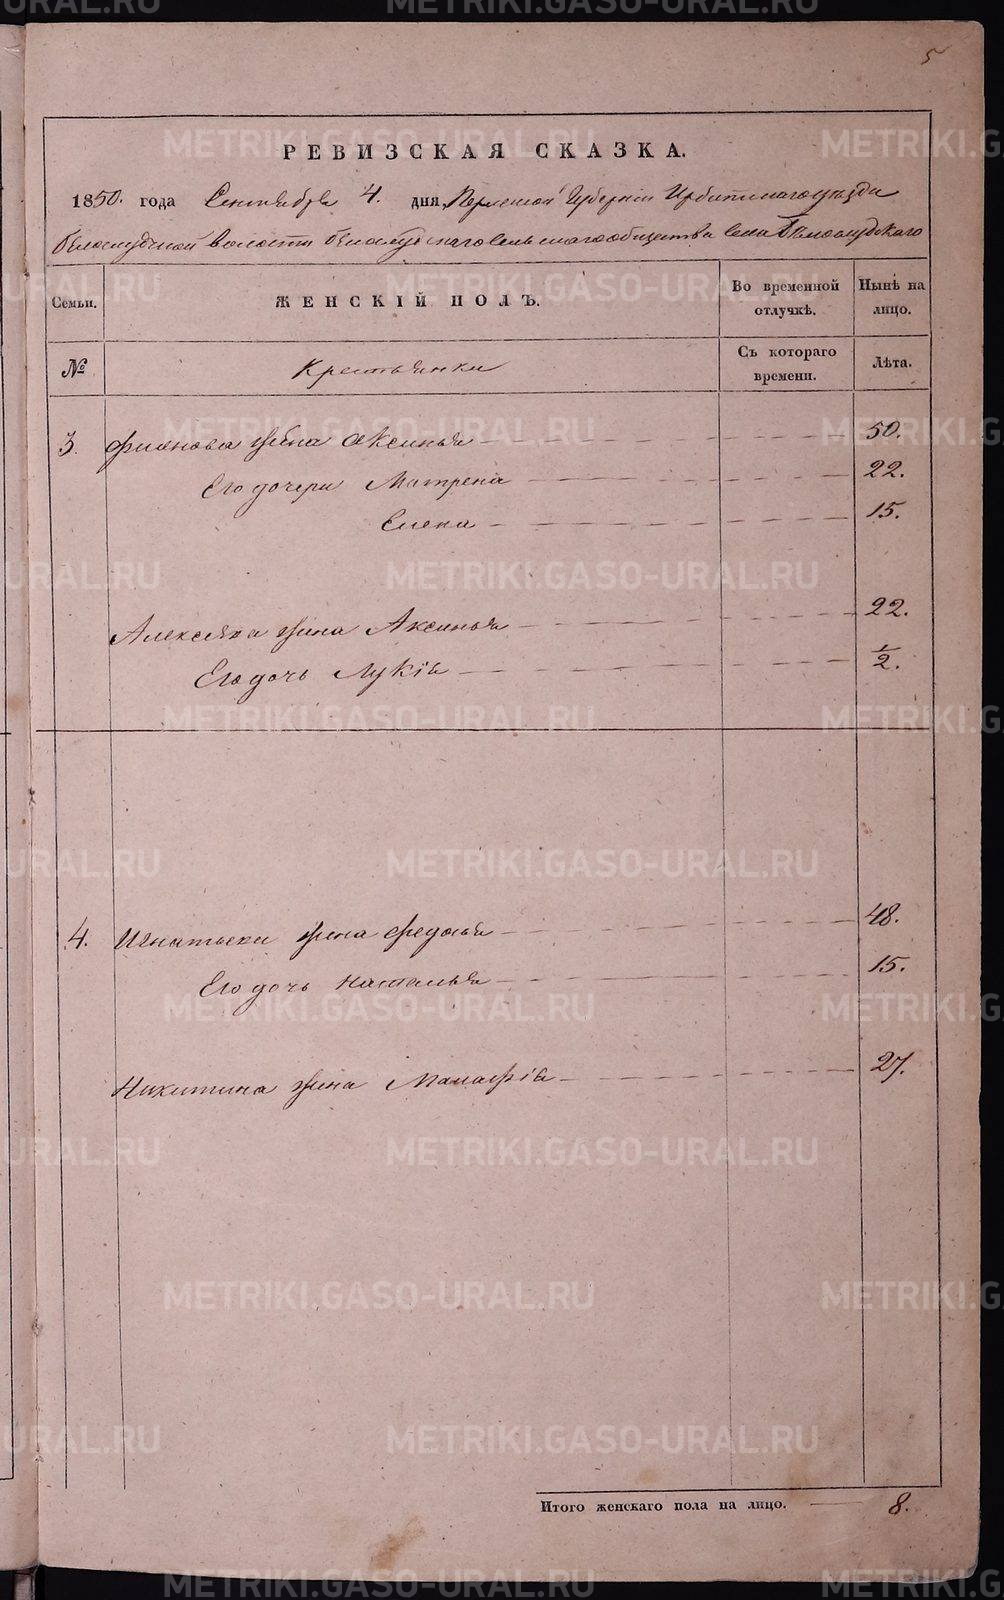 5
РЕВИЗСКАЯ СКАЗКА.
1850. года Сентября 4. дня, Пермской Губернии Ирбитскаго уезда
Белослудской волости Белослудскаго сельскаго общества села Белослудскаго
Семьи. ЖЕНСКІЙ ПОЛЪ. Во временной отлучкѣ. Нынѣ на лицо.
№ Крестьянки Съ котораго времени. Лѣта.
3. жена Аксинья 50.
Его дочери Матрена 22.
Елена 15.
Алексѣя жена Аксинья 22.
Его дочь Лукія 1/2.
4. Игнатьева жена Федосья 48.
Его дочь Наталья 15.
Никитина жена Маланія 27.
Итого женскаго пола на лицо. 8.
METRIKI.GASO-URAL.RU